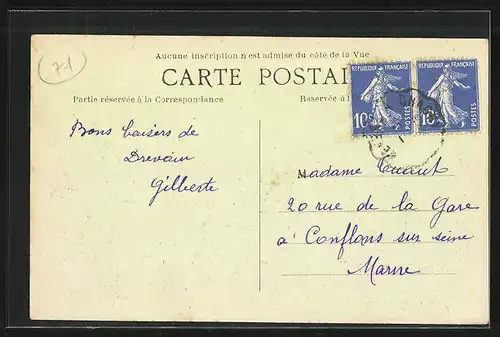 71
Aucune inscription n'est admise du côté de la Vue
CARTE POSTA
Partie réservée à la Correspondance
Réservée à l
REPUBLIQUE FRANÇAISE
10c
POSTES
REPUBLIQUE FRANÇAISE
10c
POSTES
Bons baisers de
Drevain
Gilberte
Madame Cuaut
20 rue de la Gare
a' Conflans sur seine
Marne